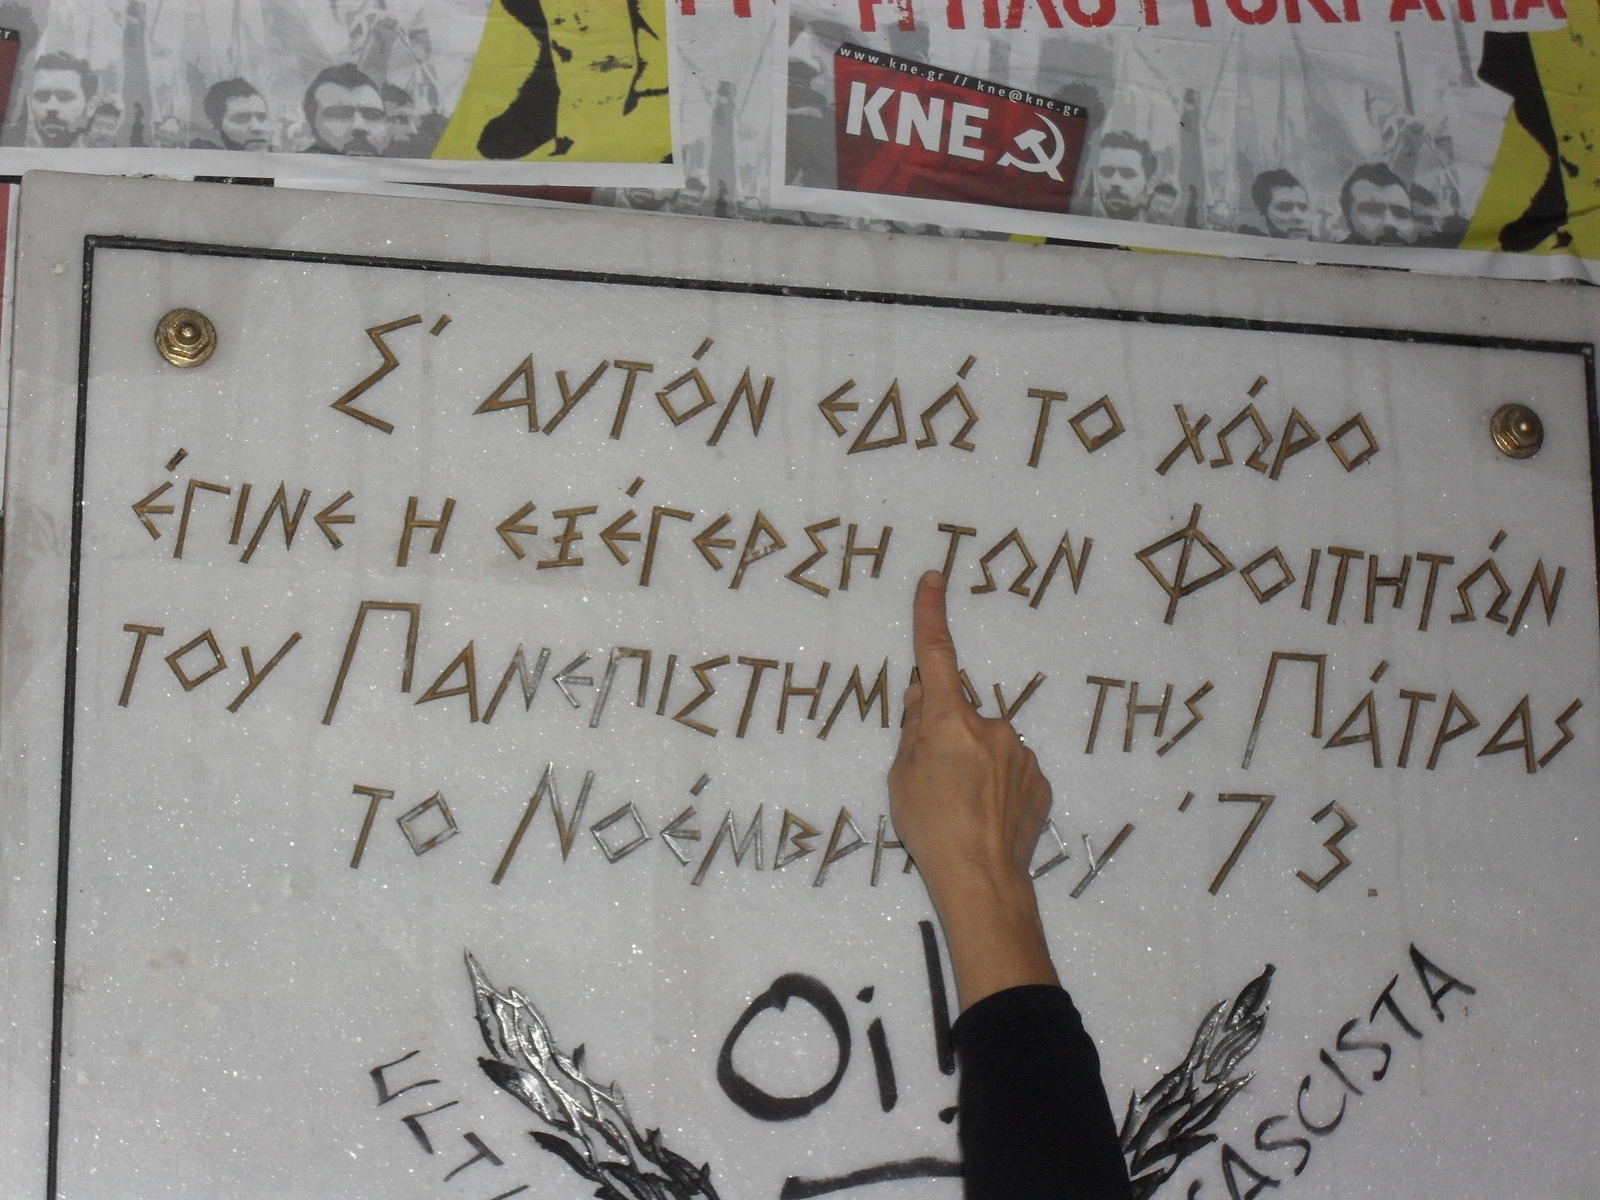 Η ΠΛΟΥΤΟΚΡΑΤΙΑ
www.kne.gr // kne@kne.gr
ΚΝΕ
Σ' ΑΥΤΌΝ ΕΔΏ ΤΟ ΧΏΡΟ
ΈΓΙΝΕ Η ΕΞΈΓΕΡΣΗ ΤΩΝ ΦΟΙΤΗΤΏΝ
ΤΟΥ ΠΑΝΕΠΙΣΤΗΜΙΟΥ ΤΗΣ ΠΆΤΡΑΣ
ΤΟ ΝΟΈΜΒΡΗ ΤΟΥ '73.
Oi!
FASCISTA